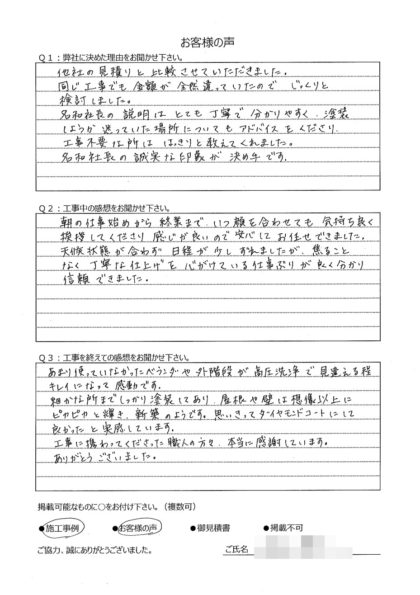 お客様の声
Q1：弊社に決めた理由をお聞かせ下さい。
他社の見積りと比較させていただきました。
同じ工事でも金額が全然違っていたので じっくりと
検討しました。
名和社長の説明はとても丁寧で分かりやすく、塗装
しようか迷っていた場所についてもアドバイスをくださり、
工事不要な所は はっきりと教えてくれました。
名和社長の誠実な印象が決め手です。
Q2：工事中の感想をお聞かせ下さい。
朝の仕事始めから 終業まで、いつ顔を合わせても 気持ち良く
挨拶してくださり 感じが良いので 安心して お任せできました。
天候状態が合わず 日程が少しずれましたが、焦ること
なく 丁寧な仕上げを 心がけている仕事ぶりが良く分かり
信頼できました。
Q3：工事を終えての感想をお聞かせ下さい。
あまり使っていなかったベランダや外階段が高圧洗浄で見違える程
キレイになって感動です。
細かな所までしっかり塗装してあり、屋根や壁は想像以上に
ピカピカと輝き、新築のようです。思いきってダイヤモンドコートにして
良かったと実感しています。
工事に携わってくださった職人の方々、本当に感謝しています。
ありがとうございました。
掲載可能なものに○をお付け下さい。（複数可）
●施工事例 ●お客様の声 ●御見積書 ●掲載不可
ご協力、誠にありがとうございました。 ご氏名